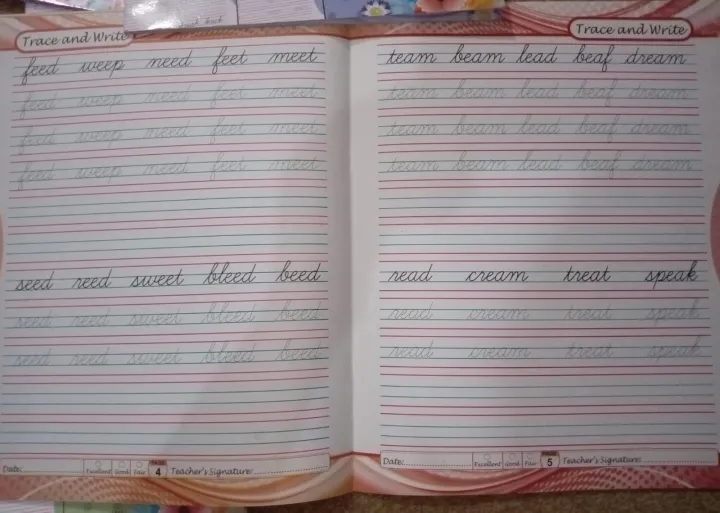 Trace and Write
feed weep need feet meet
feed weep need feet meet
feed weep need feet meet
feed weep need feet meet
seed reed sweet bleed beed
seed reed sweet bleed beed
seed reed sweet bleed beed
Date:
Excellent Good Fair 4 Teacher's Signature:
Trace and Write
team beam lead beaf dream
team beam lead beaf dream
team beam lead beaf dream
team beam lead beaf dream
read cream treat speak
read cream treat speak
read cream treat speak
Date:
Excellent Good Fair 5 Teacher's Signature: